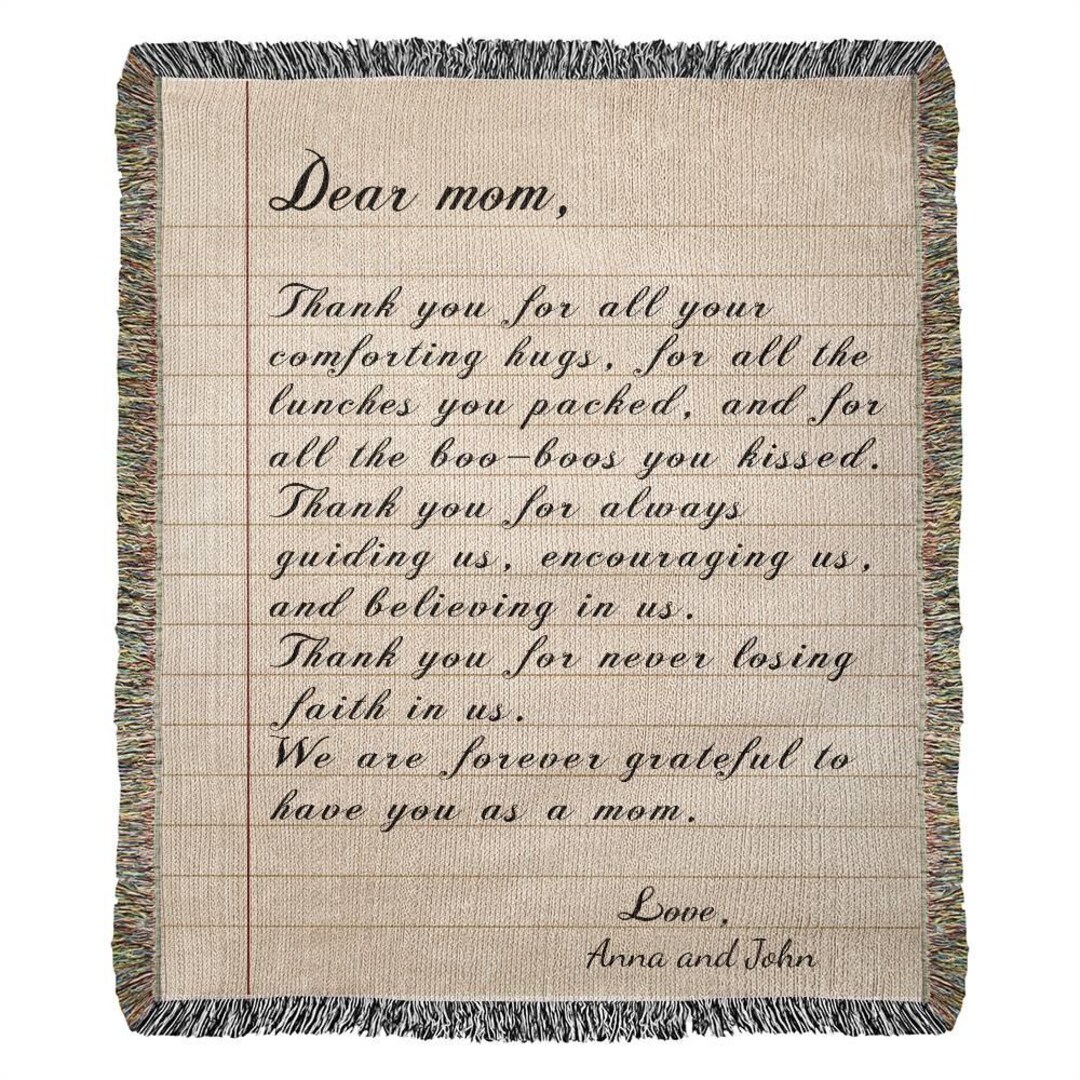 Dear mom,
Thank you for all your
comforting hugs, for all the
lunches you packed, and for
all the boo-boos you kissed.
Thank you for always
guiding us, encouraging us,
and believing in us.
Thank you for never losing
faith in us.
We are forever grateful to
have you as a mom.
Love,
Anna and John